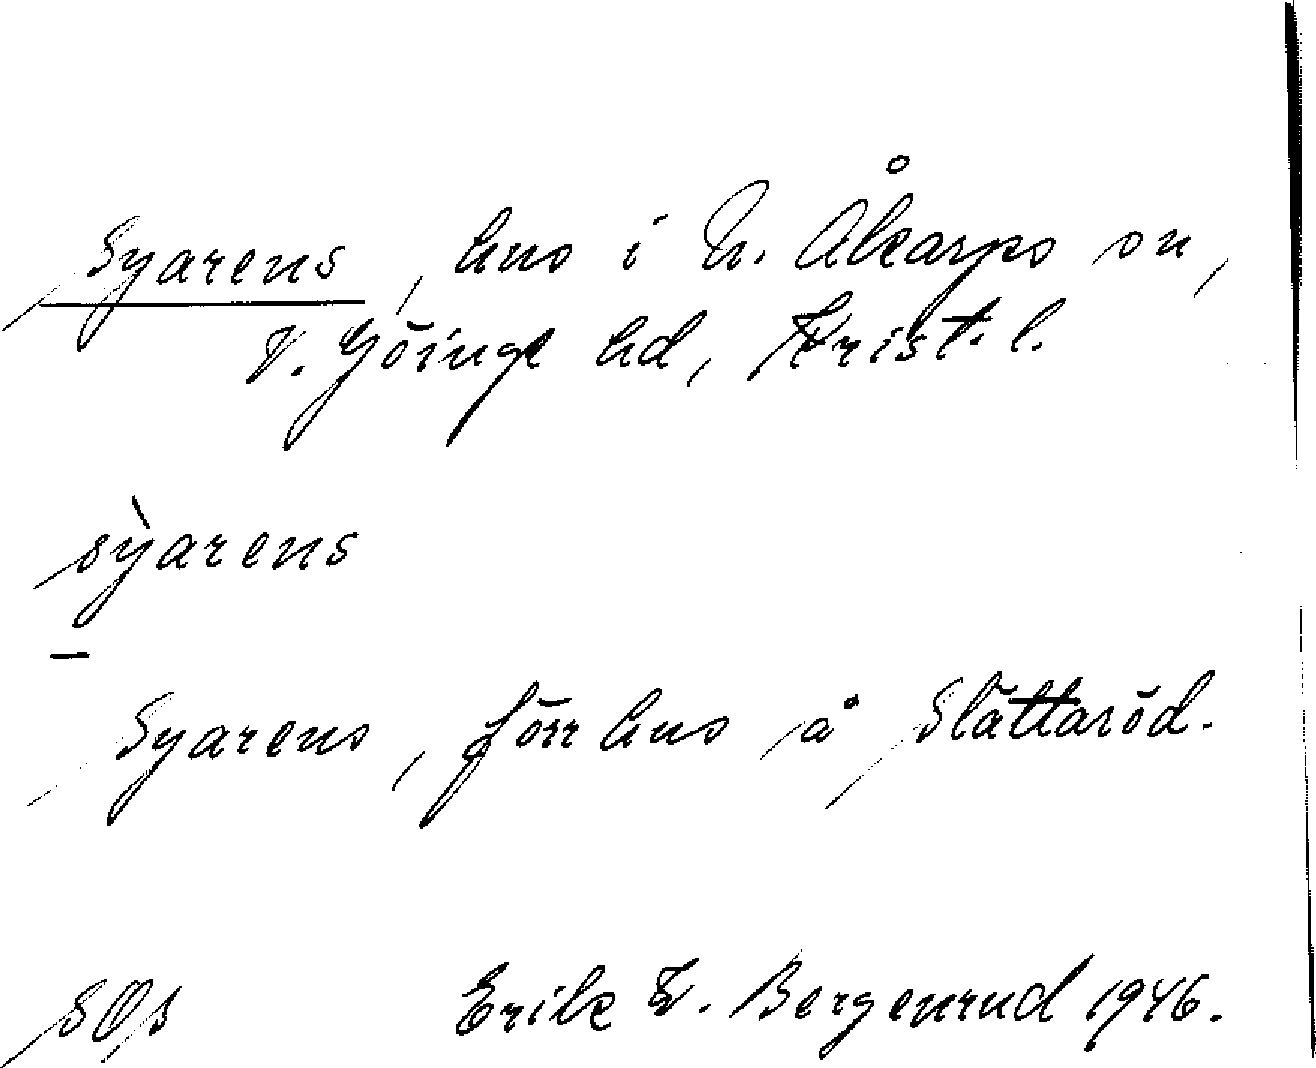 Syarens, hus i N. Åkarps sn,
V. Göinge hd, Krist. l.
sỳarens
–
Syarens, förr hus å Slättaröd.
SOs Erik W. Bergenrud 1946.